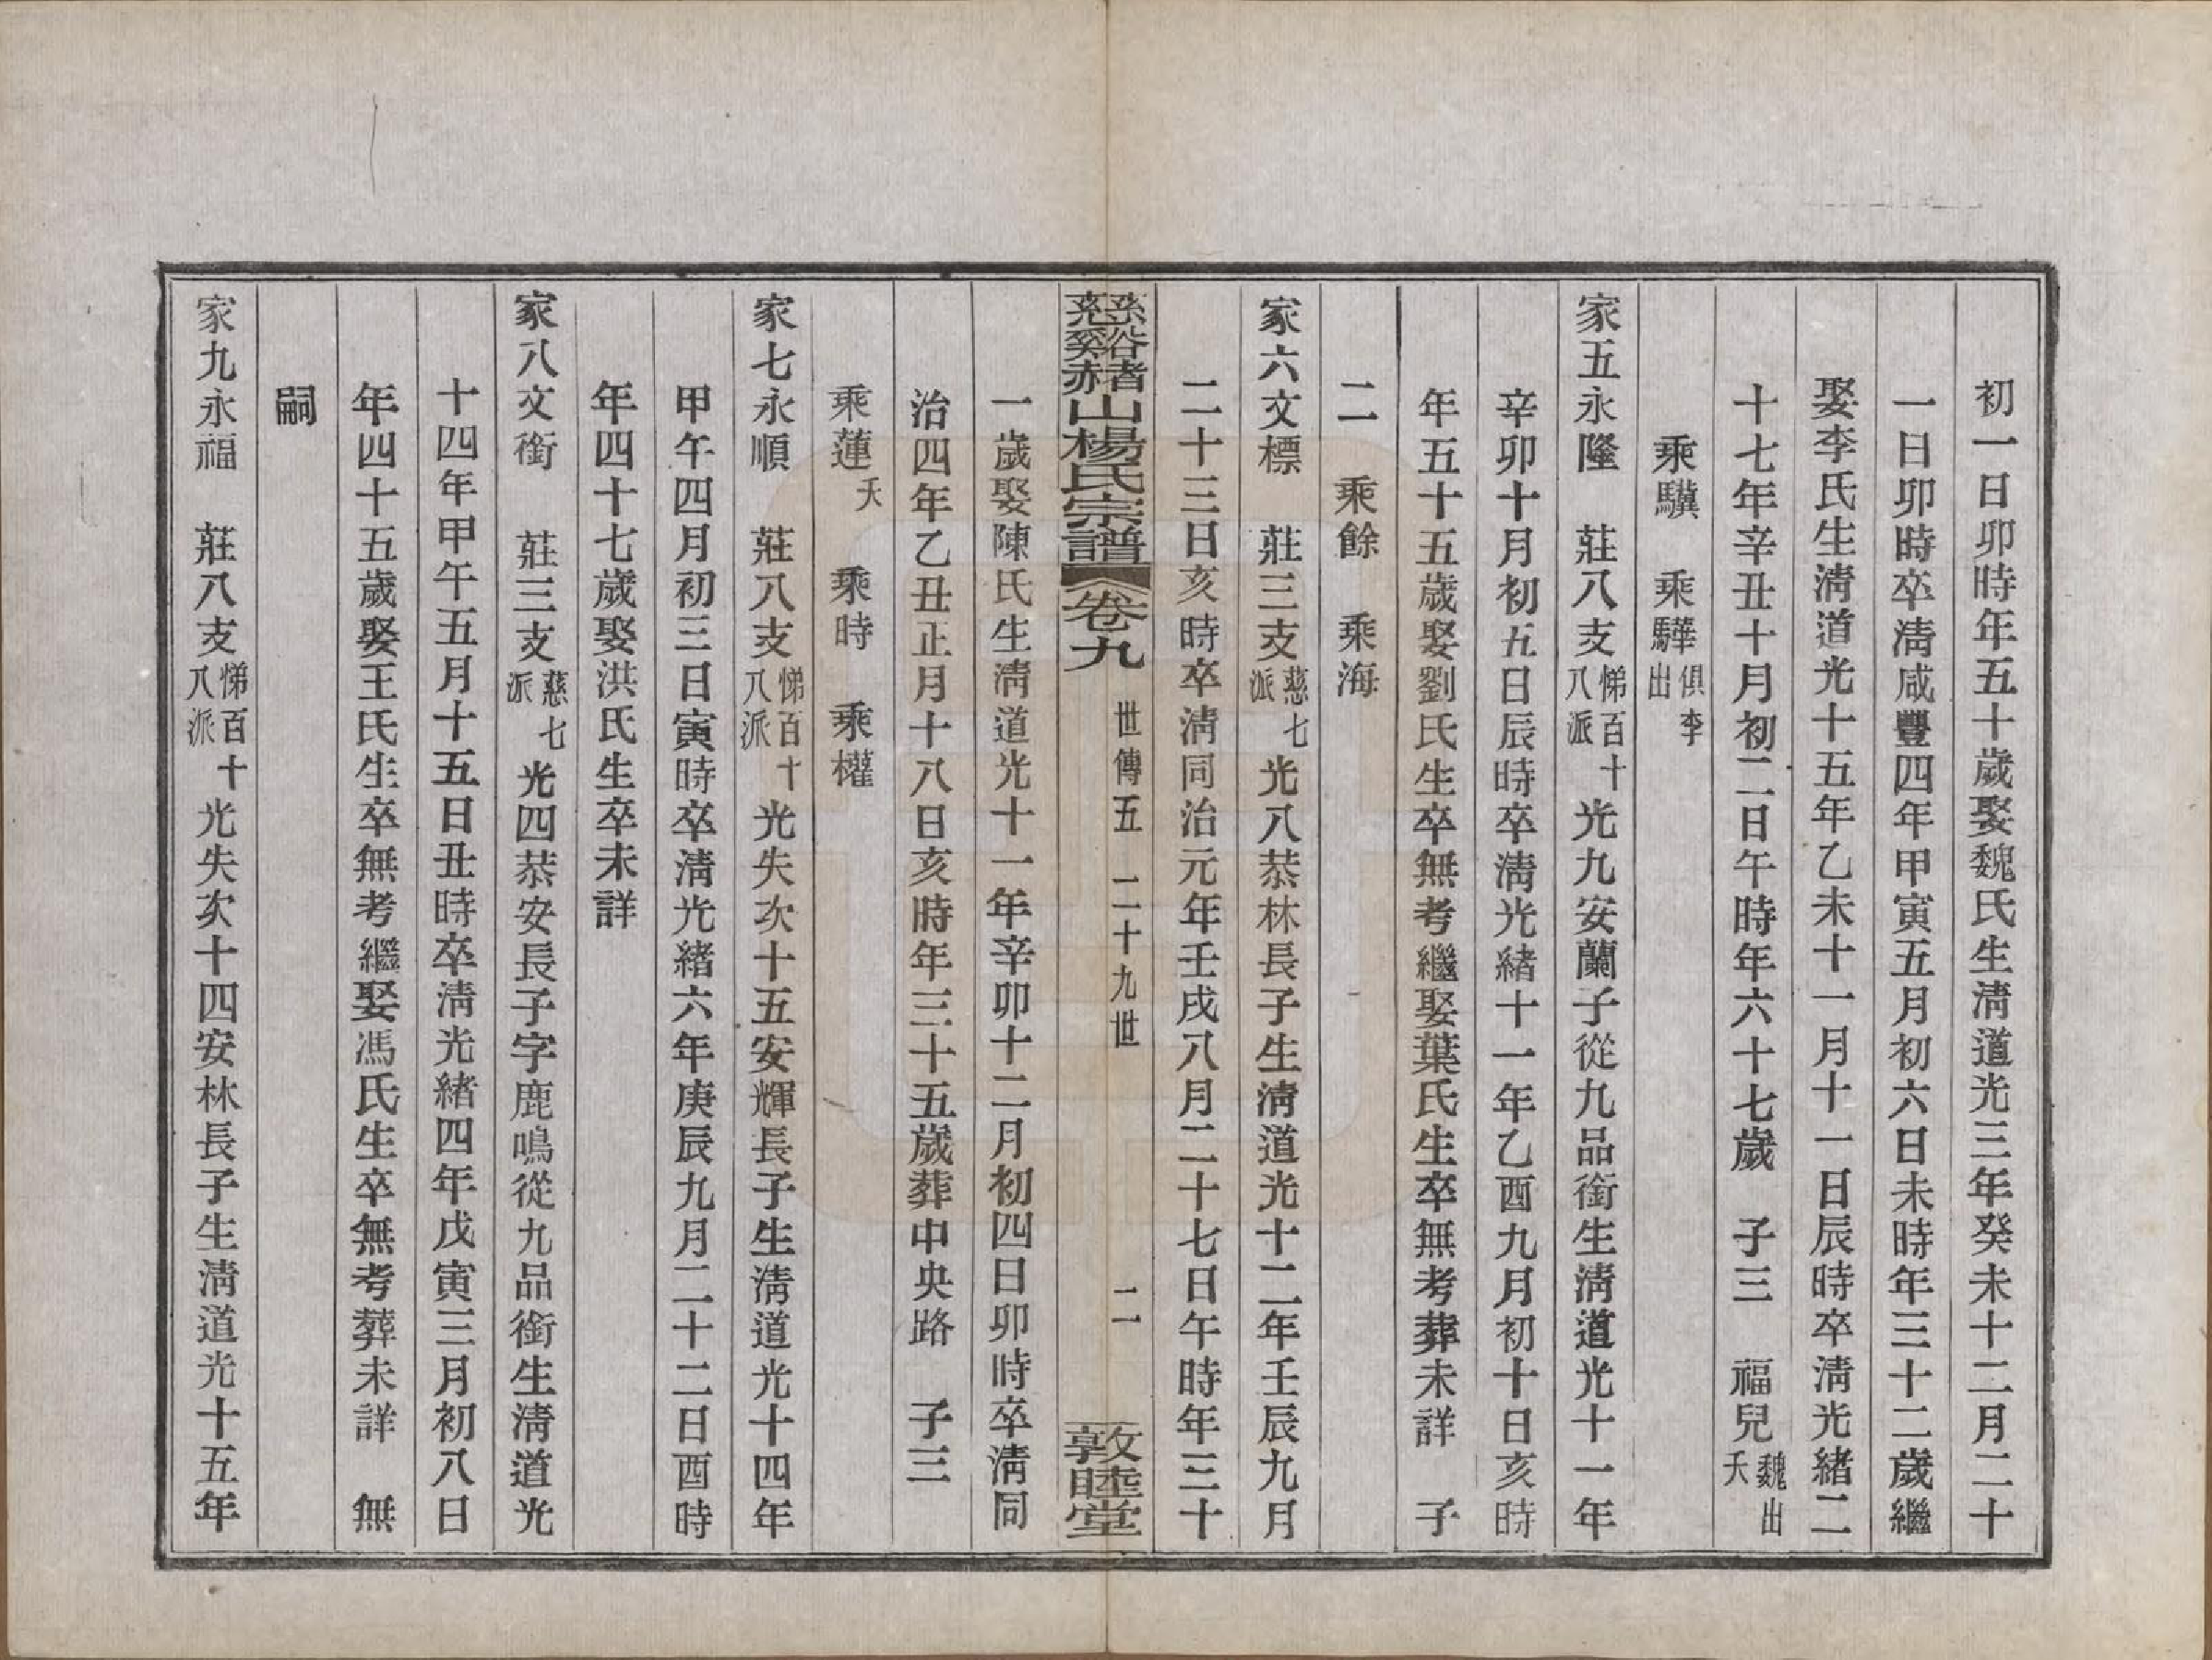 初一日卯時年五十歲娶魏氏生淸道光三年癸未十二月二十
一日卯時卒淸咸豐四年甲寅五月初六日未時年三十二歲繼
娶李氏生淸道光十五年乙未十一月十一日辰時卒淸光緒二
十七年辛丑十月初二日午時年六十七歲　子三　福兒魏出夭
乘驥　乘驊俱李出
家五永隆　莊八支悌百十八派光九安蘭子從九品銜生淸道光十一年
辛卯十月初五日辰時卒淸光緒十一年乙酉九月初十日亥時
年五十五歲娶劉氏生卒無考繼娶葉氏生卒無考葬未詳　子
二　乘餘　乘海
家六文標　莊三支慈七派光八恭林長子生淸道光十二年壬辰九月
二十三日亥時卒淸同治元年壬戌八月二十七日午時年三十
慈谿赭山楊氏宗譜　卷九　世傳五　二十九世　二　敦睦堂
一歲娶陳氏生淸道光十一年辛卯十二月初四日卯時卒淸同
治四年乙丑正月十八日亥時年三十五歲葬中央路　子三
乘蓮夭　乘時　乘權
家七永順　莊八支悌百十八派光失次十五安輝長子生淸道光十四年
甲午四月初三日寅時卒淸光緒六年庚辰九月二十二日酉時
年四十七歲娶洪氏生卒未詳
家八文銜　莊三支慈七派光四恭安長子字鹿鳴從九品銜生淸道光
十四年甲午五月十五日丑時卒淸光緒四年戊寅三月初八日
年四十五歲娶王氏生卒無考繼娶馮氏生卒無考葬未詳　無
嗣
家九永福　莊八支悌百十八派光失次十四安林長子生淸道光十五年